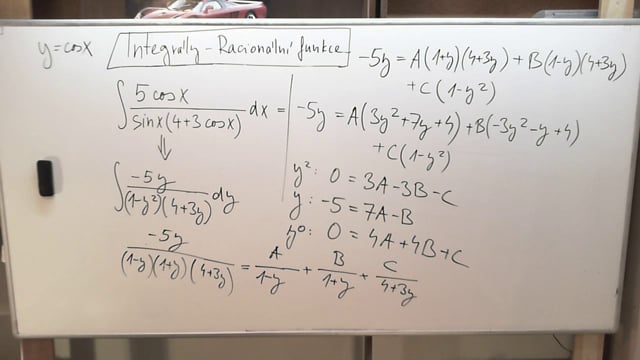 y = cosx
Integrály - Racionální funkce
∫ 5 cosx / sinx(4+3cosx) dx =
⇓
∫ -5y / (1-y²)(4+3y) dy
-5y / (1-y)(1+y)(4+3y) = A / 1-y + B / 1+y + C / 4+3y
-5y = A(1+y)(4+3y) + B(1-y)(4+3y)
+ C(1-y²)
-5y = A(3y²+7y+4) + B(-3y²-y+4)
+ C(1-y²)
y²: 0 = 3A - 3B - C
y: -5 = 7A - B
y⁰: 0 = 4A + 4B + C